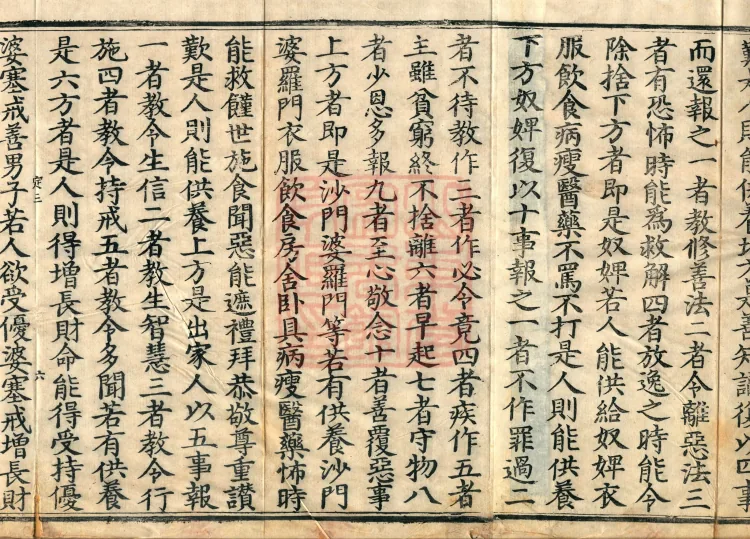 善知識復以四事
而還報之一者教修善法二者令離惡法三
者有恐怖時能爲救解四者放逸之時能令
除捨下方者即是奴婢若人能供給奴婢衣
服飲食病瘦醫藥不罵不打是人則能供養
下方奴婢復以十事報之一者不作罪過二
者不待教作三者作必令竟四者疾作五者
主雖貧窮終不捨離六者早起七者守物八
者少恩多報九者至心敬念十者善覆惡事
上方者即是沙門婆羅門等若有供養沙門
婆羅門衣服飲食房舍卧具病瘦醫藥怖時
能救饉世施食聞惡能遮禮拜恭敬尊重讃
歎是人則能供養上方是出家人以五事報
一者教令生信二者教生智慧三者教令行
施四者教令持戒五者教令多聞若有供養
是六方者是人則得增長財命能得受持優
六
婆塞戒善男子若人欲受優婆塞戒增長財